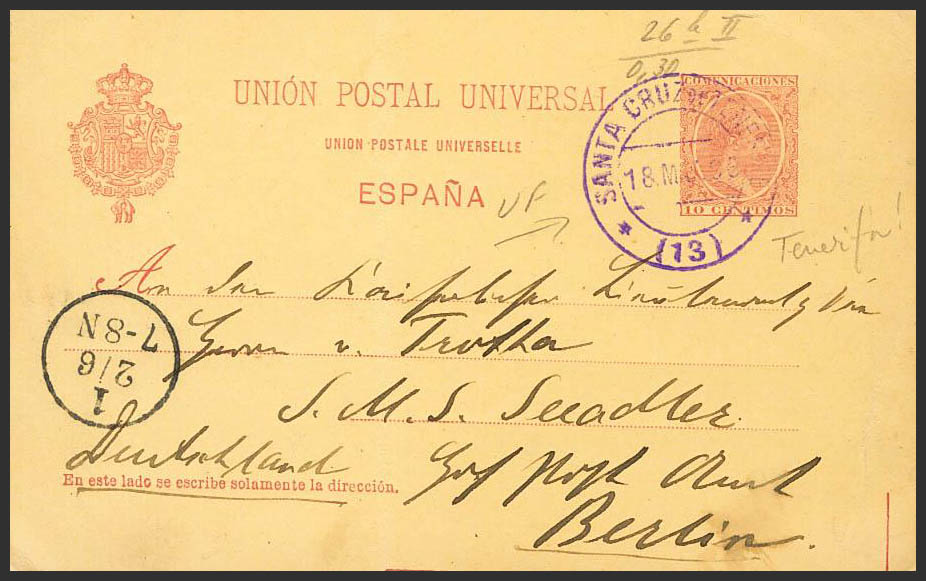 26 h II
0,30
UNIÓN POSTAL UNIVERSAL
UNION POSTALE UNIVERSELLE
ESPAÑA
COMUNICACIONES
10 CENTIMOS
SANTA CRUZ
18.M
(13)
VF
An den
Herrn v. Trotha
S. M. S. Seeadler
Deutschland Hof Post Amt
Berlin.
En este lado se escribe solamente la dirección.
1
2/6
7-8N